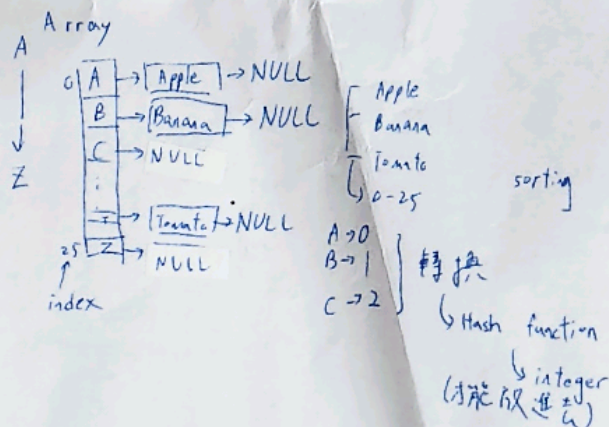 Array
A
↓
Z
0 A → Apple → NULL
B → Banana → NULL
C → NULL
⋮
T → Tomato → NULL
25 Z → NULL
index
Apple
Banana
Tomato
↳ 0-25
sorting
A → 0
B → 1
C → 2
轉換
↳ Hash function
↳ integer
(才能放進去)